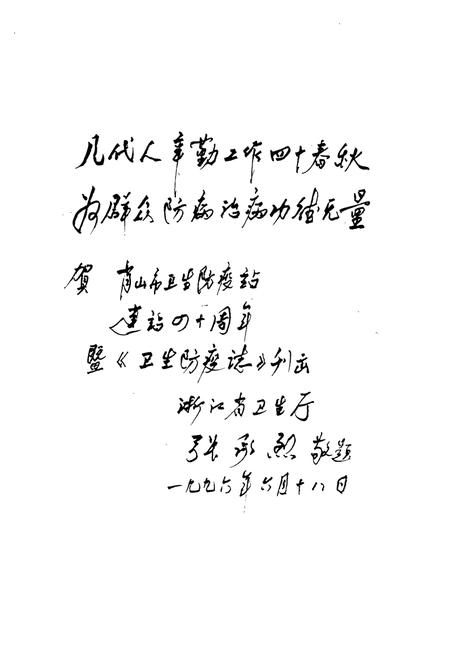 几代人辛勤工作四十春秋
为群众防病治病功德无量
贺 肖山市卫生防疫站
建站四十周年
暨《卫生防疫誌》刊出
浙江省卫生厅
张承烈 敬题
一九九六年六月十八日